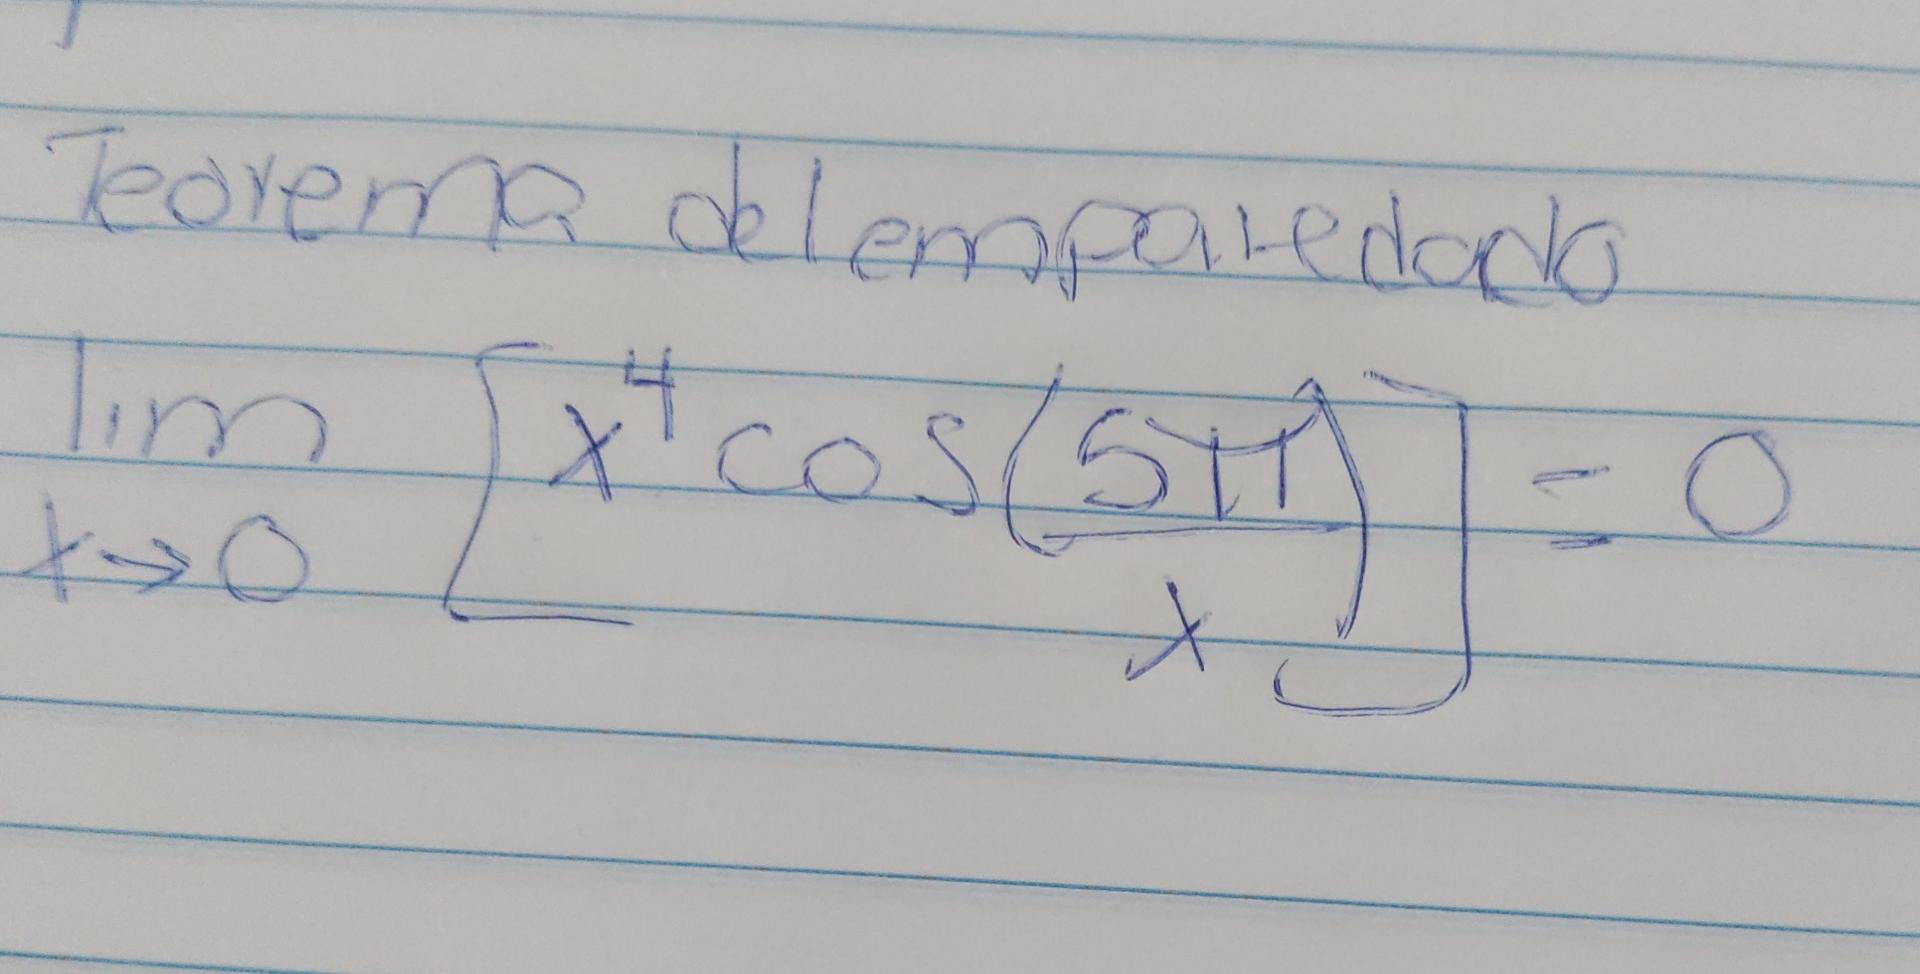 Teorema del emparedado
lim [x⁴ cos(5π/x)] = 0
x→0